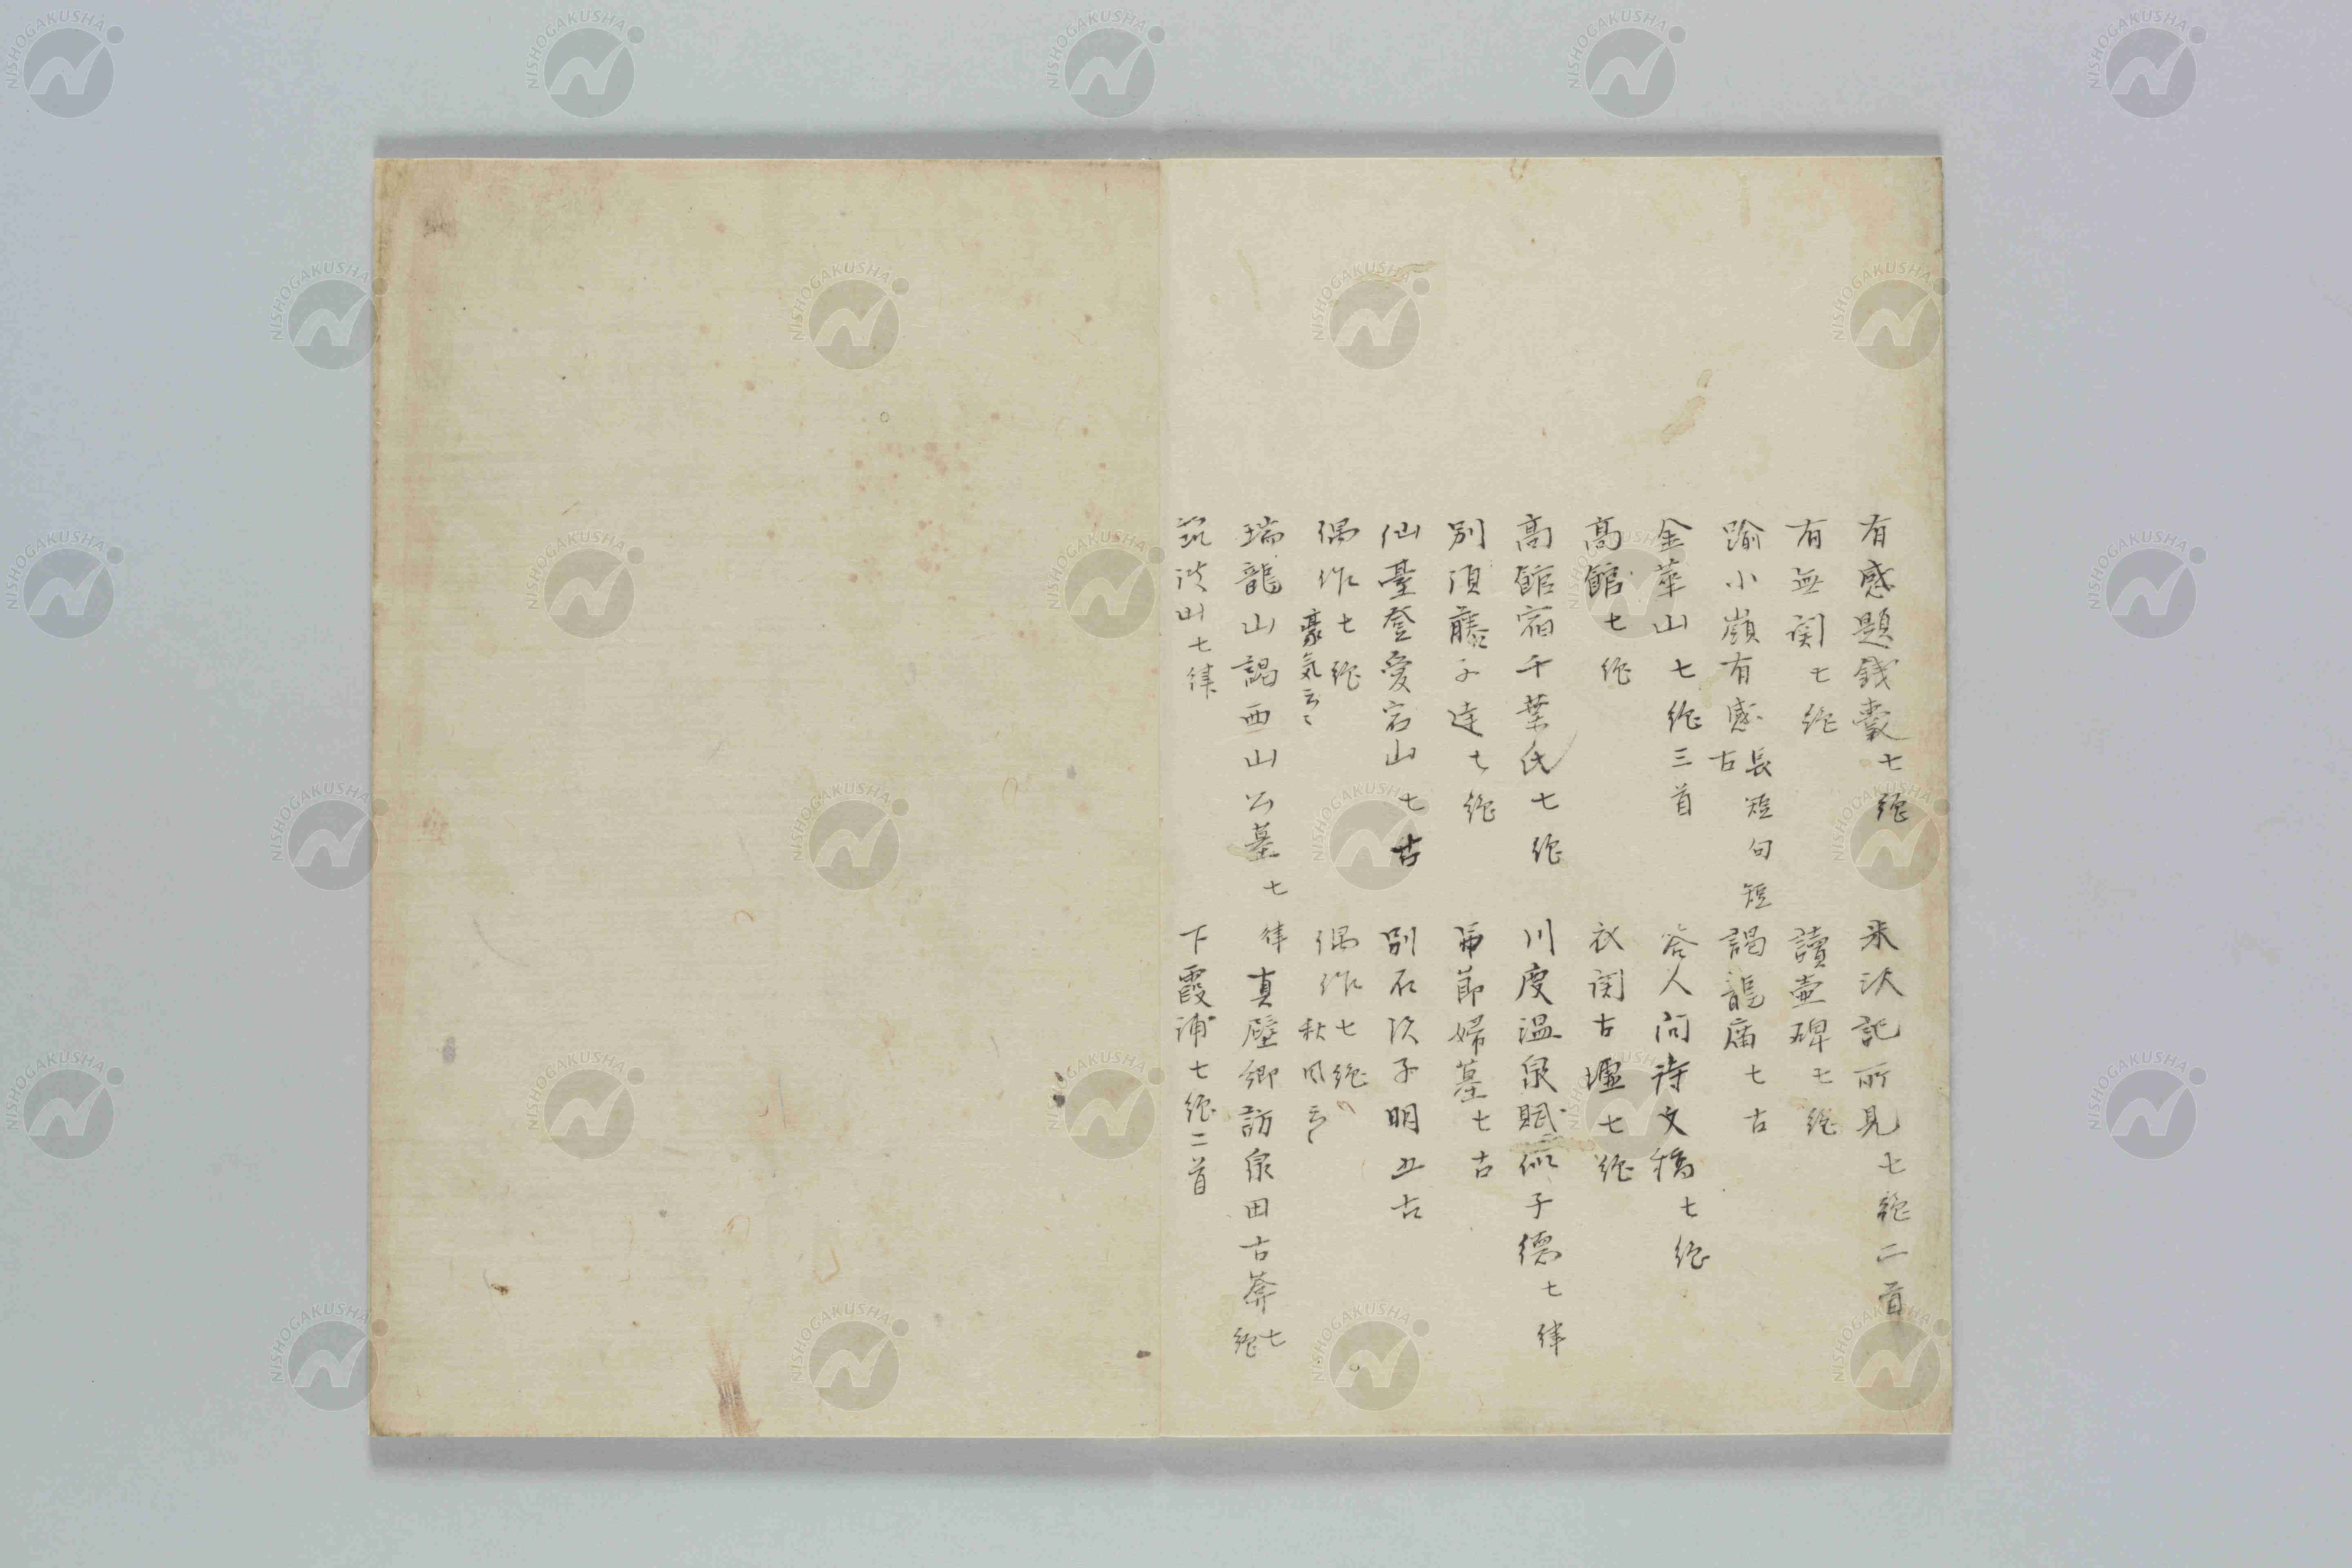 有感題錢嚢七絶　来汰記所見七絶二首
有無関七絶　讀壷碑七絶
踰小嶺有感長短句短古　謁龍廟七古
金華山七絶三首　答人問詩文稿七絶
高館七絶　衣関古墟七絶
高館宿千葉氏七絶　川度温泉賦似子德七律
別須藤子達七絶　節婦墓七古
仙臺登愛宕山七古　別石汲子明五古
偶作七絶豪気云々　偶作七絶秋風云々
瑞龍山謁西山公墓七律　真壁郷訪泉田古莽七絶
筑波山七律　下霞浦七絶二首
NISHOGAKUSHA